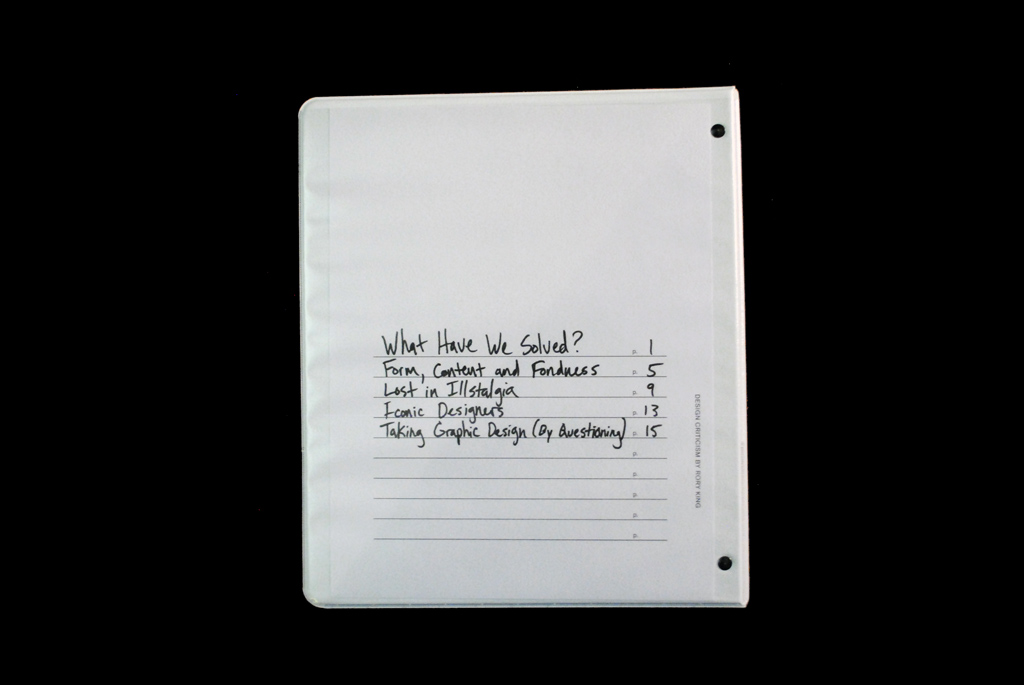 What Have We Solved? p. 1
Form, Content and Fondness p. 5
Lost in Illstalgia p. 9
Iconic Designers p. 13
Taking Graphic Design (By Questioning) p. 15
p.
p.
p.
p.
p.
DESIGN CRITICISM BY RORY KING